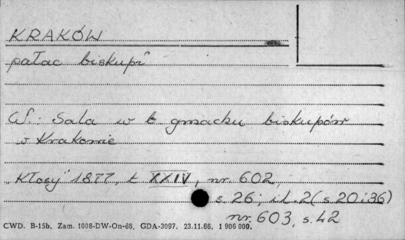 KRAKÓW
pałac biskupi
W.: Sala w b. gmachu biskupów
w Krakowie
"Kłosy" 1877, t. XXIV, nr. 602,
s. 26; il. 2 (s. 20 i 36)
nr. 603, s. 42
CWD. B-15b. Zam. 1008-DW-On-66, GDA-3097. 23.11.66, 1 906 000.